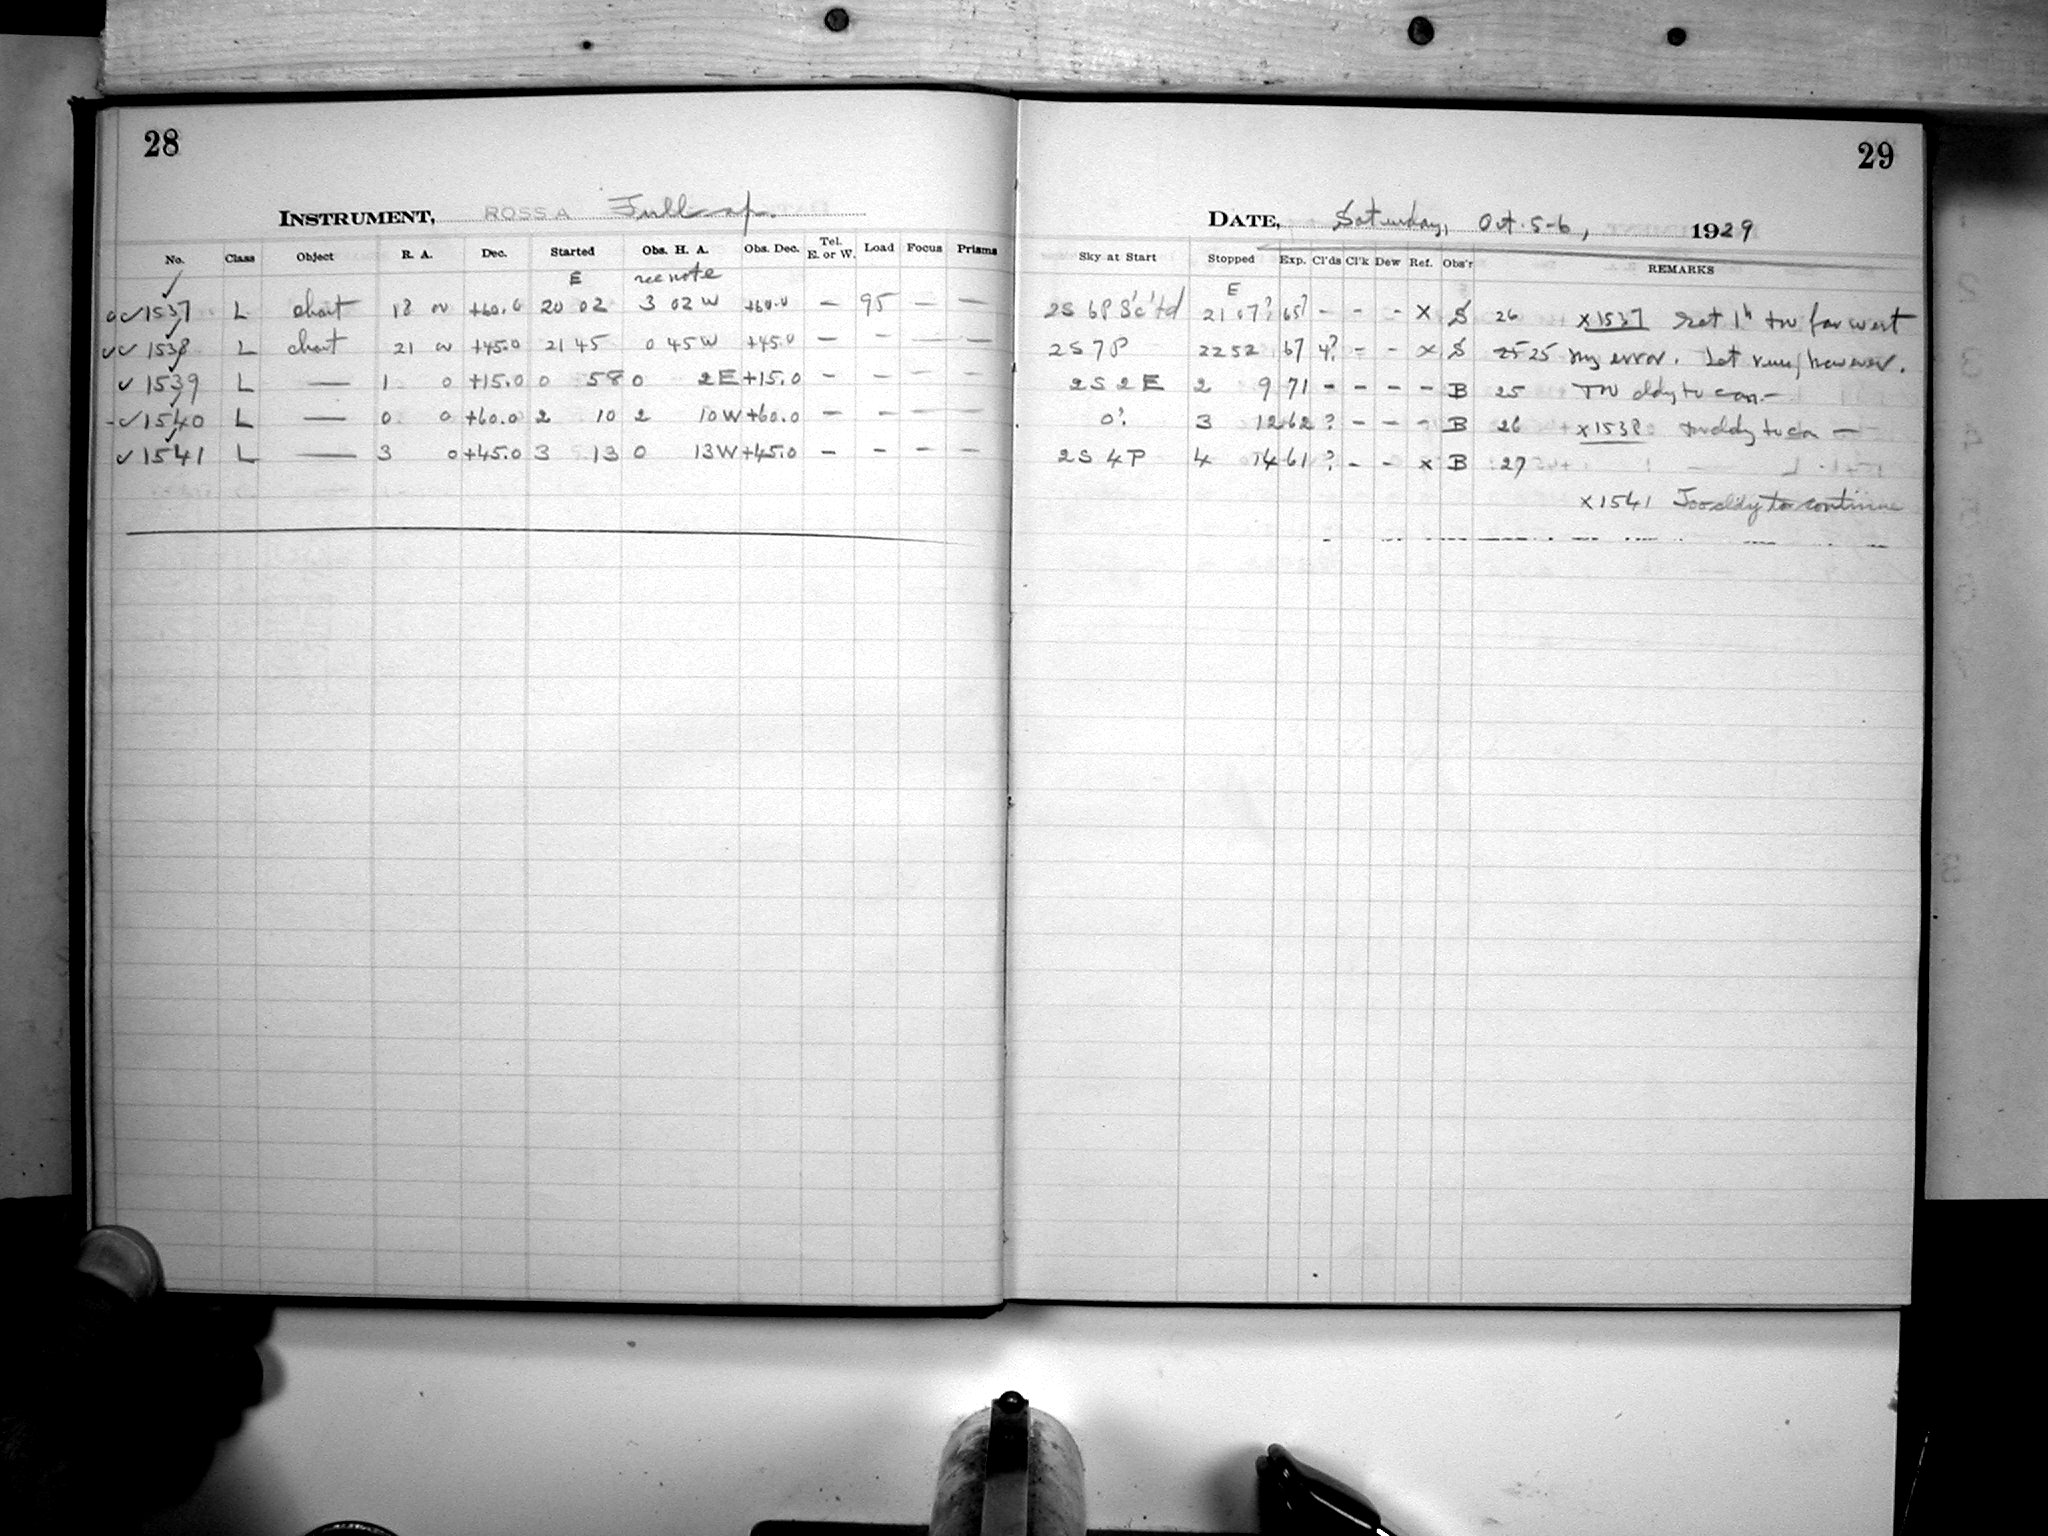 28
INSTRUMENT, ROSS A Full ap.
No. Class Object R. A. Dec. Started Obs. H. A. Obs. Dec. Tel. E. or W. Load Focus Prisms
E see note
✓1537 L chart 18 00 +60.0 20 02 3 02 W +60.0 — 95 — —
✓✓1538 L chart 21 00 +45.0 21 45 0 45 W +45.0 — — — —
✓1539 L — 1 0 +15.0 0 58 0 2 E +15.0 — — — —
-✓1540 L — 0 0 +60.0 2 10 2 10 W +60.0 — — — —
✓1541 L — 3 0 +45.0 3 13 0 13 W +45.0 — — — —
29
DATE, Saturday, Oct. 5-6, 1929
Sky at Start Stopped Exp. Cl'ds Cl'k Dew Ref. Obs'r REMARKS
E
2S 6P Sc'td 21 07? 65? - - - X S 26 X1537 Set 1h too far west
2S 7P 22 52 67 4? - - X S 25 25 my error. Let run, however.
2S 2E 2 9 71 - - - - B 25 Too cldy to con.—
0? 3 12 62 ? - - - B 26 X1538 too cldy to con —
2S 4P 4 14 61 ? - - X B 27
X1541 Too cldy to continue